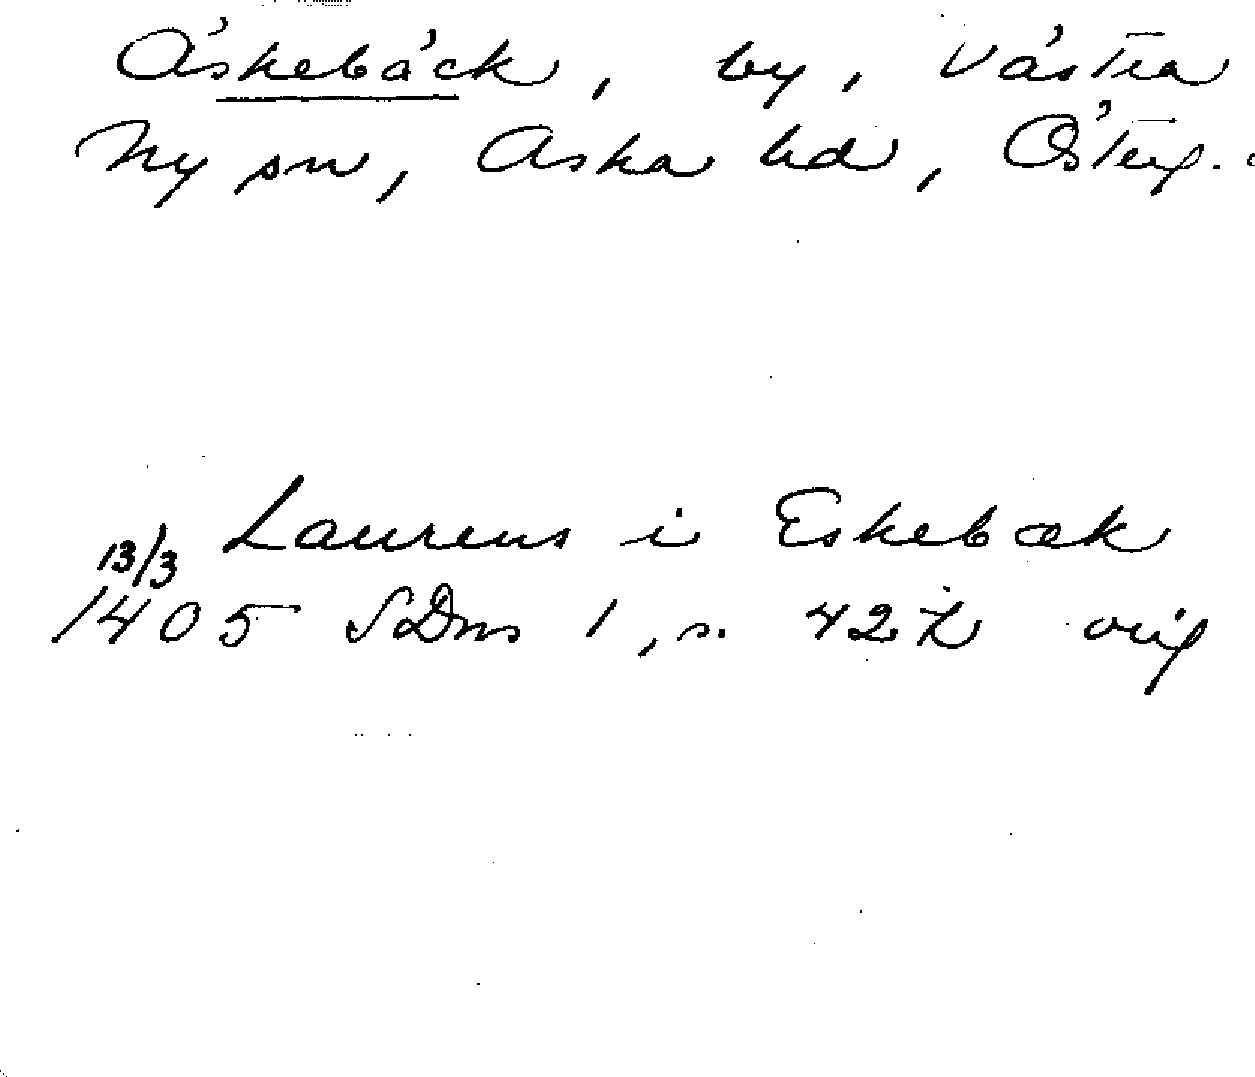 Äskebäck, by, Västra
Ny sn, Aska hd, Österg.
Laurens i Eskebæk
13/3
1405 SDns 1, s. 42 orig